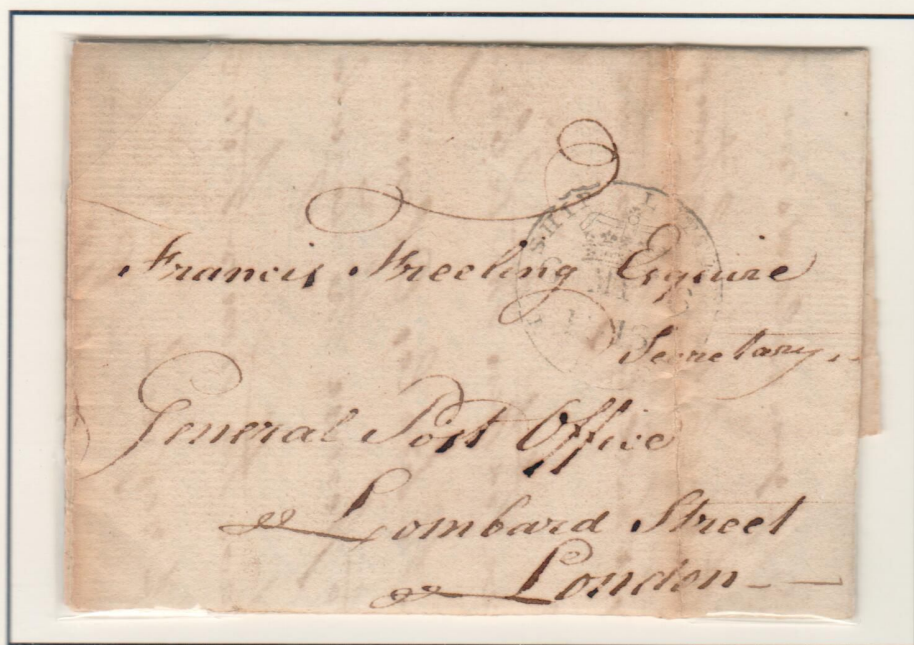 SHIP L
Francis Freeling Esquire
Secretary
General Post Office
Lombard Street
London